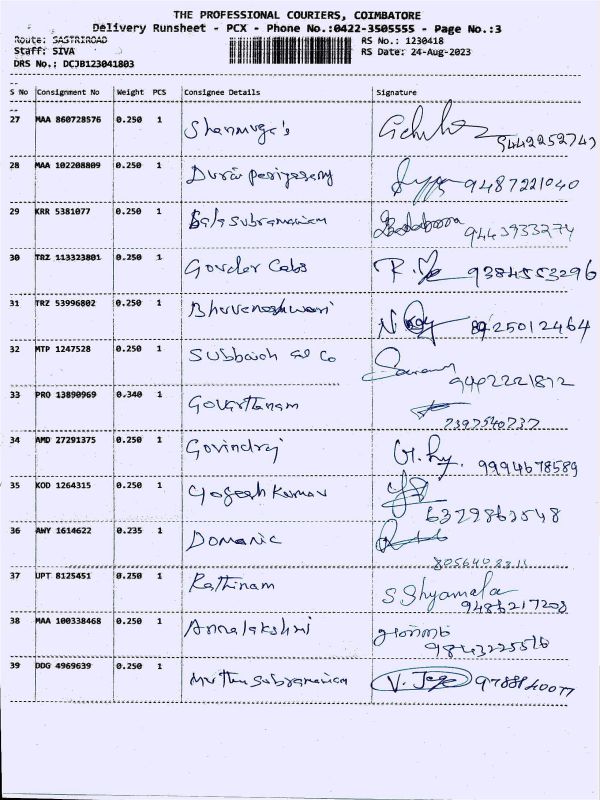 THE PROFESSIONAL COURIERS, COIMBATORE
Delivery Runsheet - PCX - Phone No.:0422-3505555 - Page No.:3
Route: SASTRIROAD RS No.: 1230418
Staff: SIVA RS Date: 24-Aug-2023
DRS No.: DCJB123041803
S No Consignment No Weight PCS Consignee Details Signature
27 MAA 860728576 0.250 1 Shanmuga's 9442252743
28 MAA 102208809 0.250 1 Durai 9487221040
29 KRR 5381077 0.250 1 Balasubramaniam 9443933274
30 TRZ 113323801 0.250 1 Govder Cabs 9384553296
31 TRZ 53996802 0.250 1 Bhuvaneshwari 8925012464
32 MTP 1247528 0.250 1 Subbaiah & Co
33 PRO 13890969 0.340 1 Govarthanam 7397540737
34 AMD 27291375 0.250 1 Govindraj 9994678589
35 KOD 1264315 0.250 1 Yogesh Kumar 6379862548
36 AWY 1614622 0.235 1 Domanic
37 UPT 8125451 0.250 1 Rathinam S Shyamala
9486217208
38 MAA 100338468 0.250 1 Annalakshmi
9843225516
39 DDG 4969639 0.250 1 Muthu subramaniam V. Jega 9788140077